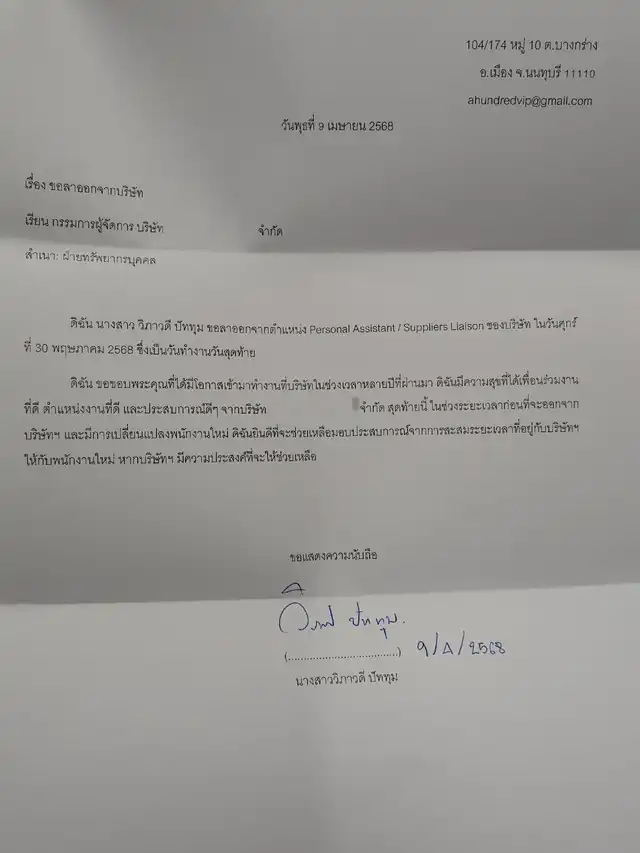 104/174 หมู่ 10 ต.บางกร่าง
อ.เมือง จ.นนทบุรี 11110
ahundredvip@gmail.com
วันพุธที่ 9 เมษายน 2568
เรื่อง ขอลาออกจากบริษัท
เรียน กรรมการผู้จัดการ บริษัท จำกัด
สำเนา: ฝ่ายทรัพยากรบุคคล
ดิฉัน นางสาว วิภาวดี ปัททุม ขอลาออกจากตำแหน่ง Personal Assistant / Suppliers Liaison ของบริษัท ในวันศุกร์
ที่ 30 พฤษภาคม 2568 ซึ่งเป็นวันทำงานวันสุดท้าย
ดิฉัน ขอขอบพระคุณที่ได้มีโอกาสเข้ามาทำงานที่บริษัทในช่วงเวลาหลายปีที่ผ่านมา ดิฉันมีความสุขที่ได้เพื่อนร่วมงาน
ที่ดี ตำแหน่งงานที่ดี และประสบการณ์ดีๆ จากบริษัท จำกัด สุดท้ายนี้ ในช่วงระยะเวลาก่อนที่จะออกจาก
บริษัทฯ และมีการเปลี่ยนแปลงพนักงานใหม่ ดิฉันยินดีที่จะช่วยเหลือมอบประสบการณ์จากการสะสมระยะเวลาที่อยู่กับบริษัทฯ
ให้กับพนักงานใหม่ หากบริษัทฯ มีความประสงค์ที่จะให้ช่วยเหลือ
ขอแสดงความนับถือ
วิภาวดี ปัททุม.
(..................................) 9/4/2568
นางสาววิภาวดี ปัททุม